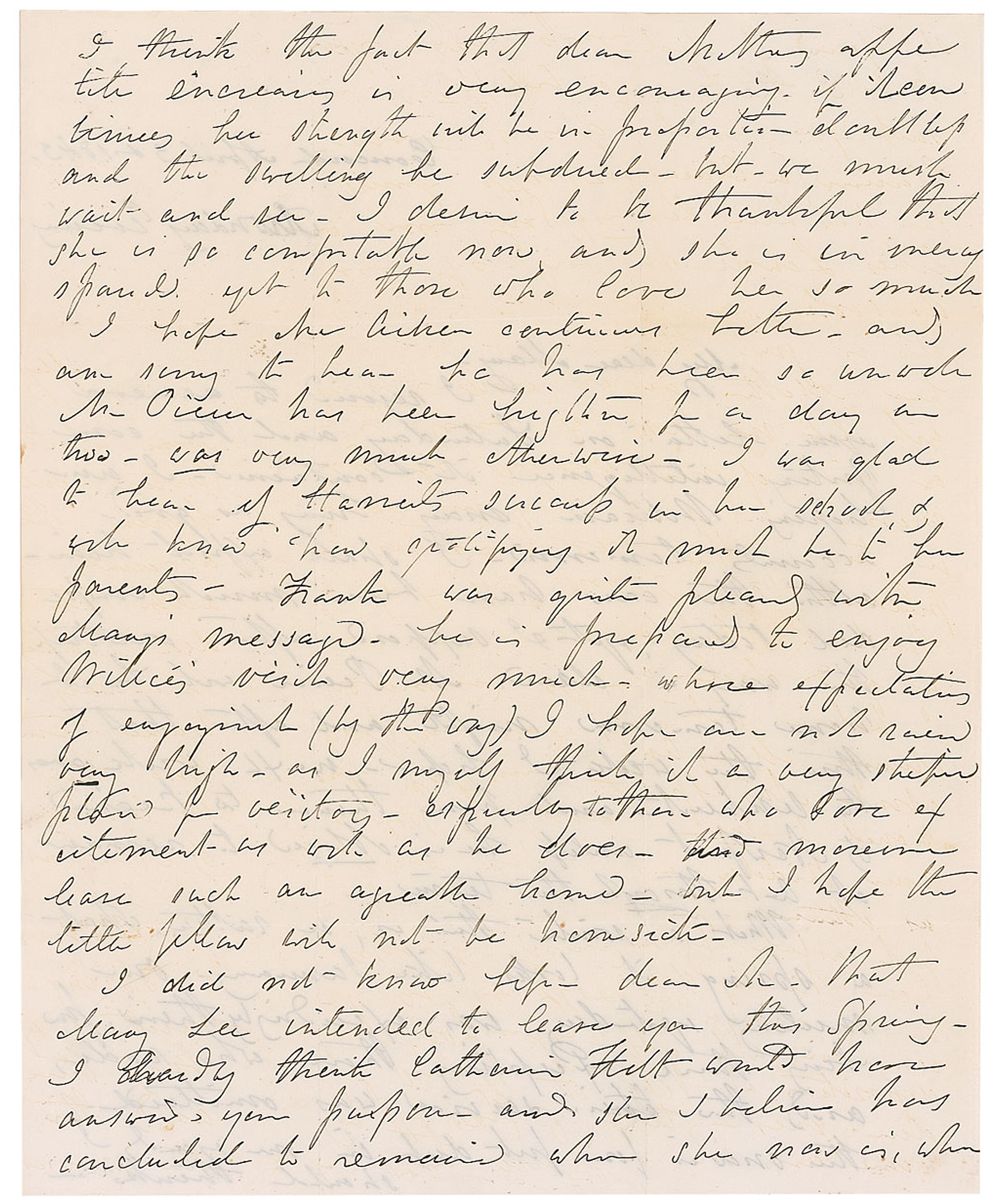 I think the fact that dear Mothers appe
tite increasing is very encouraging. if it con
tinues her strength will be in proportion doubtless
and the swelling be subdued - but - we must
wait and see - I desire to be thankful that
she is so comfortable now, and she is in mercy
spared yet to those who love her so much
I hope Mr Aiken continues better - and
am sorry to hear he has been so unwell
Mr Pierce has been brighter for a day or
two - was very much otherwise - I was glad
to hear of Harriets success in her school &
well know how gratifying it must be to her
parents - Frank was quite pleased with
Mary's message - he is prepared to enjoy
Willie's visit very much - whose expectations
of enjoyment (by the way) I hope are not raised
very high - as I myself think it a very stupid
place for visitors - especially to those who love ex
citement as well as he does - and moreover
leave such an agreeable home - but I hope the
little fellow will not be homesick -
I did not know before dear M - that
Mary Lee intended to leave you this Spring -
I hardly think Catherine Holt would have
answered your purpose - and she I believe has
concluded to remain where she now is, when